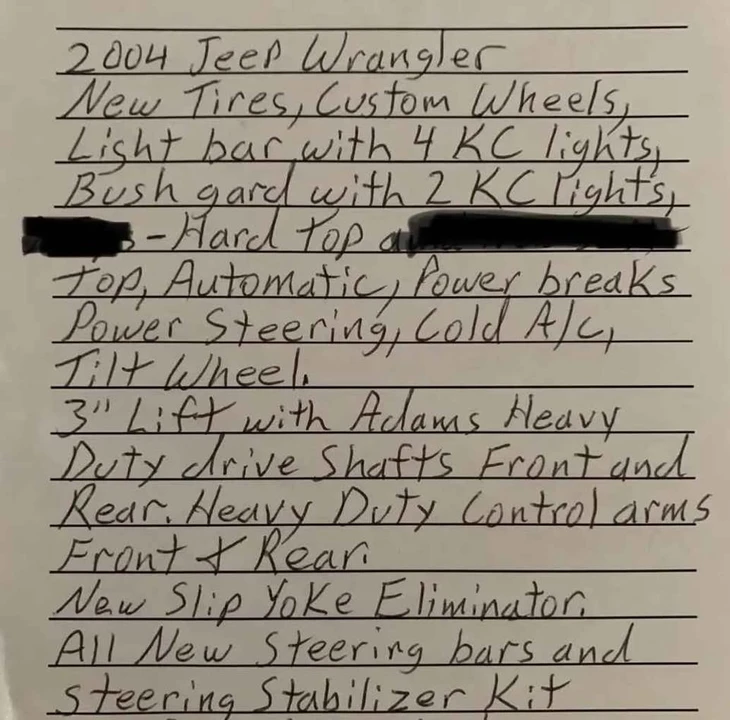 2004 Jeep Wrangler
New Tires, Custom Wheels,
Light bar with 4 KC lights,
Bush gard with 2 KC lights,
- Hard Top
Top, Automatic, Power breaks
Power Steering, Cold A/C,
Tilt Wheel.
3" Lift with Adams Heavy
Duty drive Shafts Front and
Rear. Heavy Duty Control arms
Front & Rear.
New Slip Yoke Eliminator.
All New Steering bars and
Steering Stabilizer Kit